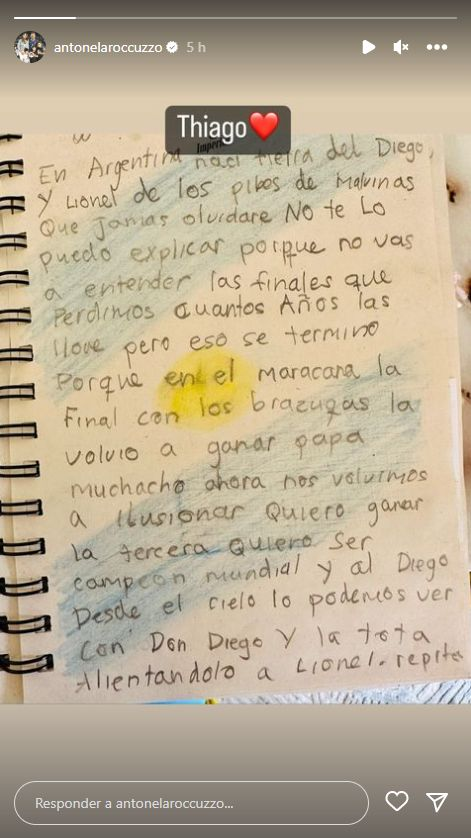 antonelaroccuzzo 5 h
Thiago❤️
En Argentina naci tierra del Diego,
Y Lionel de los pibes de Malvinas
Que Jamas olvidare NO te Lo
puedo explicar porque no vas
a entender las finales que
Perdimos cuantos Años las
llore pero eso se termino
Porque en el maracana la
Final con los brazucas la
volvio a ganar papa
muchacho ahora nos volvimos
a ilusionar Quiero ganar
la tercera Quiero ser
campeon mundial y al Diego
Desde el cielo lo podemos ver
Con Don Diego Y la tota
Alientandolo a Lionel. repita
Responder a antonelaroccuzzo...